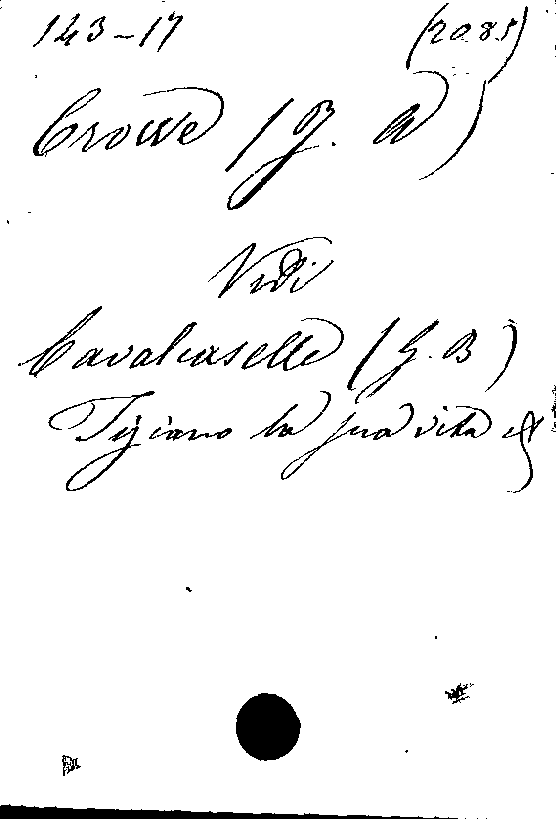 143-17 (2085)
Crowe (G. A)
Vedi
Cavalcaselle (G. B)
Tiziano la sua vita e